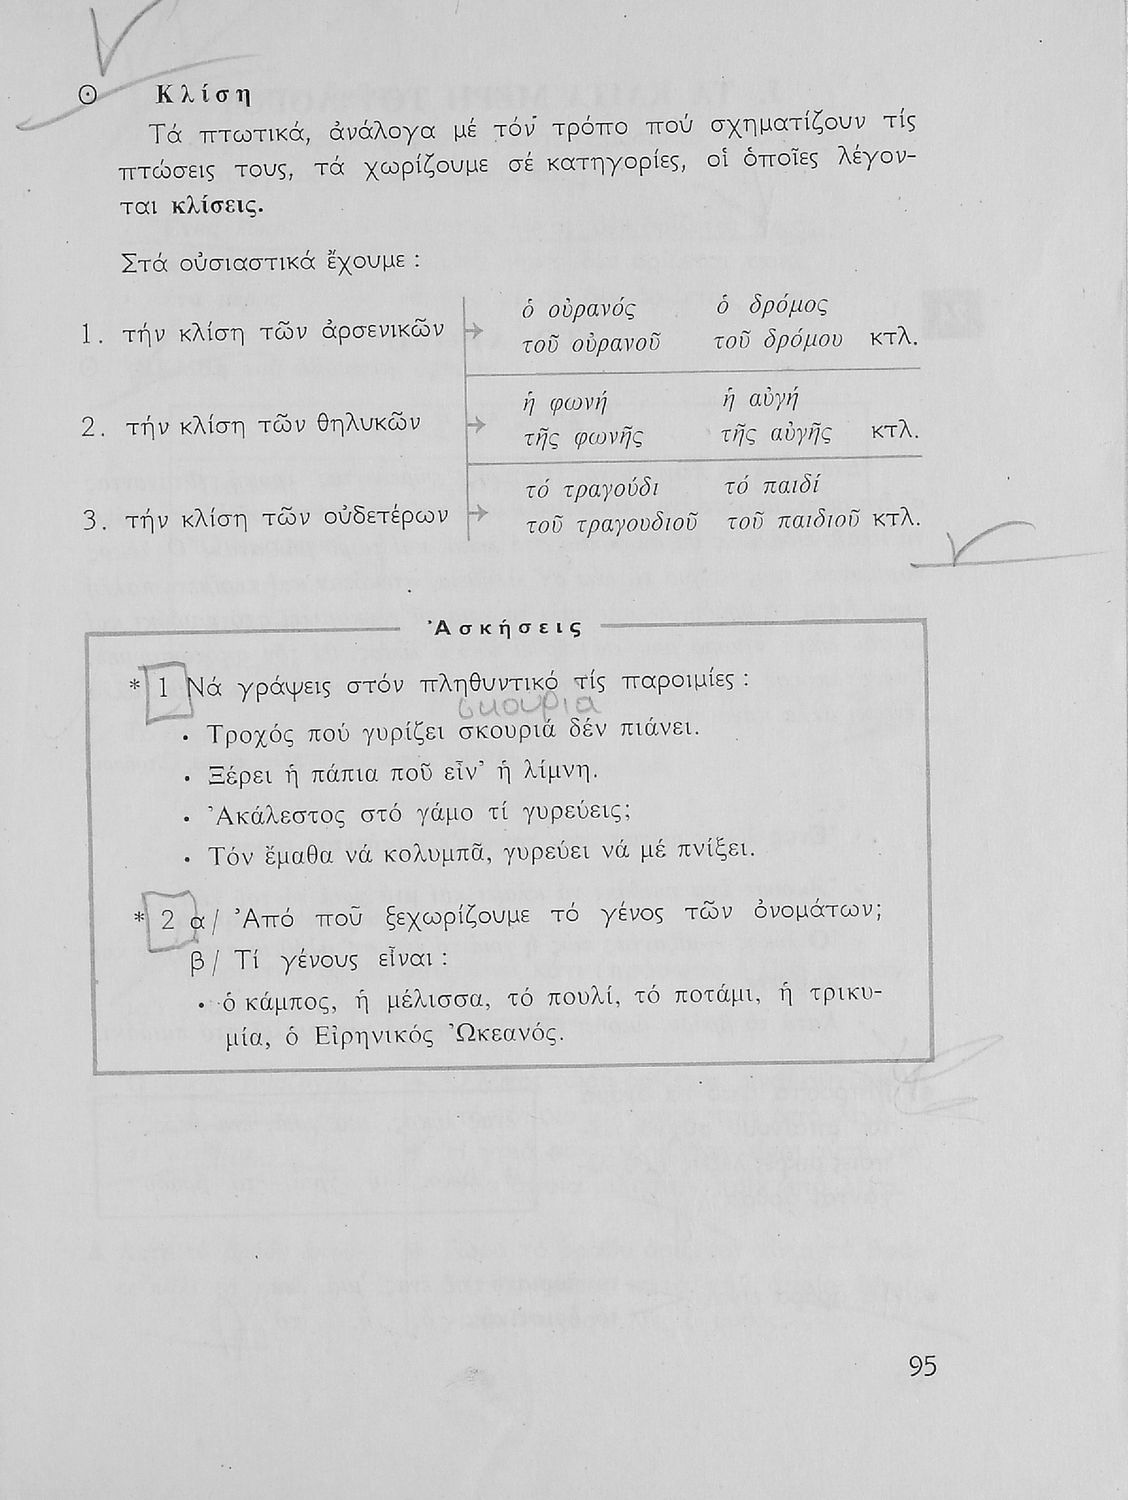 Κλίση
Τά πτωτικά, ἀνάλογα μέ τόν τρόπο πού σχηματίζουν τίς
πτώσεις τους, τά χωρίζουμε σέ κατηγορίες, οἱ ὁποῖες λέγον-
ται κλίσεις.
Στά οὐσιαστικά ἔχουμε :
ὁ οὐρανός ὁ δρόμος
1. τήν κλίση τῶν ἀρσενικῶν → τοῦ οὐρανοῦ τοῦ δρόμου κτλ.
ἡ φωνή ἡ αὐγή
2. τήν κλίση τῶν θηλυκῶν → τῆς φωνῆς τῆς αὐγῆς κτλ.
τό τραγούδι τό παιδί
3. τήν κλίση τῶν οὐδετέρων → τοῦ τραγουδιοῦ τοῦ παιδιοῦ κτλ.
Ἀσκήσεις
* 1 Νά γράψεις στόν πληθυντικό τίς παροιμίες :
σκουρια
• Τροχός πού γυρίζει σκουριά δέν πιάνει.
• Ξέρει ἡ πάπια ποῦ εἶν' ἡ λίμνη.
• Ἀκάλεστος στό γάμο τί γυρεύεις;
• Τόν ἔμαθα νά κολυμπᾶ, γυρεύει νά μέ πνίξει.
* 2 α/ Ἀπό ποῦ ξεχωρίζουμε τό γένος τῶν ὀνομάτων;
β/ Τί γένους εἶναι :
• ὁ κάμπος, ἡ μέλισσα, τό πουλί, τό ποτάμι, ἡ τρικυ-
μία, ὁ Εἰρηνικός Ὠκεανός.
95